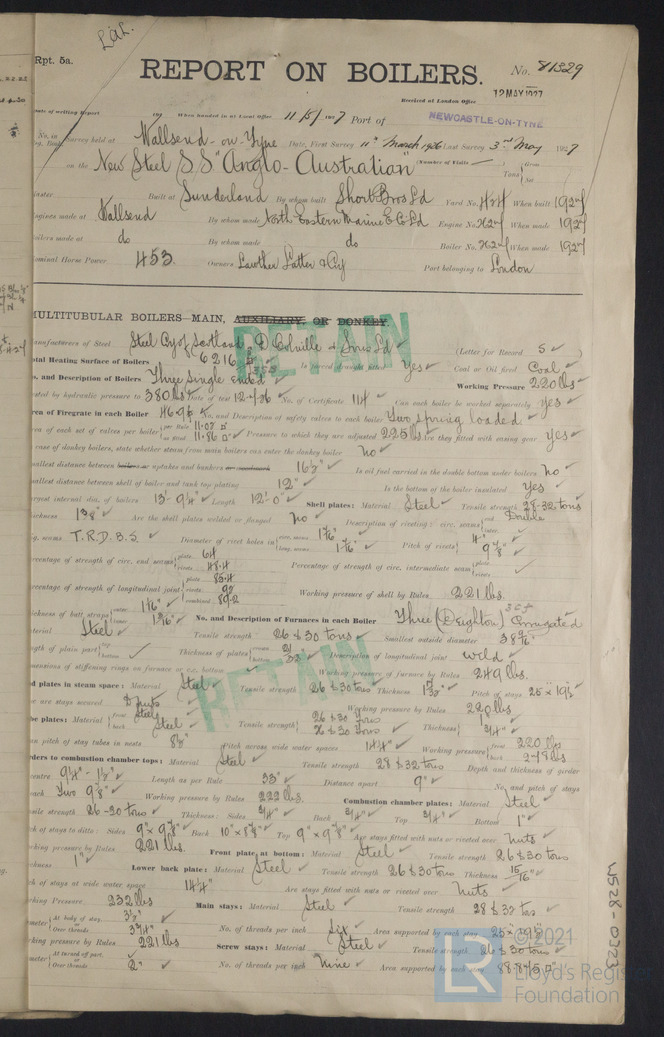 Lal.
Rpt. 5a.
REPORT ON BOILERS.
No. 81329
Received at London Office 12 MAY 1927
Date of writing Report 19 When handed in at Local Office 11/5/1927 Port of NEWCASTLE-ON-TYNE
No. in Reg. Book. Survey held at Wallsend-on-Tyne Date, First Survey 11th March 1926 Last Survey 3rd May 1927
on the New Steel S.S "Anglo-Australian" (Number of Visits ) Gross Tons Net
Master Built at Sunderland By whom built Short Bros Ld Yard No. 424 When built 1927
Engines made at Wallsend By whom made North Eastern Marine E Co Ld Engine No. 2627 When made 1927
Boilers made at do By whom made do Boiler No. 2627 When made 1927
Nominal Horse Power 453 Owners Lawther Latta & Coy Port belonging to London
MULTITUBULAR BOILERS MAIN, AUXILIARY, OR DONKEY.
RETAIN
Manufacturers of Steel Steel Coy of Scotland D. Colville & Sons Ld (Letter for Record S )
Total Heating Surface of Boilers 6216 Is forced draught fitted Yes Coal or Oil fired Coal
No. and Description of Boilers Three Single Ended Working Pressure 220 lbs
tested by hydraulic pressure to 380 lbs Date of test No. of Certificate 114 Can each boiler be worked separately Yes
Area of Firegrate in each Boiler No. and Description of safety valves to each boiler Two Spring loaded
Area of each set of valves per boiler Pressure to which they are adjusted 225 lbs Are they fitted with easing gear Yes
In case of donkey boilers, state whether steam from main boilers can enter the donkey boiler No
Smallest distance between boilers or uptakes and bunkers or woodwork 16½" Is oil fuel carried in the double bottom under boilers No
Smallest distance between shell of boiler and tank top plating 12" Is the bottom of the boiler insulated Yes
Largest internal dia. of boilers 13'-9¼" Length 12'-0" Shell plates: Material Steel Tensile strength 28-32 tons
Thickness Are the shell plates welded or flanged No Description of riveting: circ. seams end Double
long. seams T.R.D.B.S. Diameter of rivet holes in circ. seams long. seams Pitch of rivets 4" 9⅞"
Percentage of strength of circ. end seams plate 64 rivets 48.4 Percentage of strength of circ. intermediate seam plate rivets
Percentage of strength of longitudinal joint plate 85.4 rivets 90 combined 89.2 Working pressure of shell by Rules 221 lbs.
Thickness of butt straps outer inner No. and Description of Furnaces in each Boiler Three (Deighton) Corrugated
Material Steel Tensile strength 26 & 30 tons Smallest outside diameter
Length of plain part top bottom Thickness of plates crown bottom Description of longitudinal joint weld
Dimensions of stiffening rings on furnace or c.c. bottom Working pressure of furnace by Rules 249 lbs.
RETAIN
End plates in steam space: Material Steel Tensile strength 26 & 30 tons Thickness Pitch of stays
How are stays secured D. nuts Working pressure by Rules 220 lbs
Tube plates: Material front Steel back Steel Tensile strength 26 & 30 tons 26 & 30 tons Thickness 1" ¾"
Mean pitch of stay tubes in nests 8½" Pitch across wide water spaces 14¼" Working pressure front 220 lbs back 248 lbs
Girders to combustion chamber tops: Material Steel Tensile strength 28 & 32 tons Depth and thickness of girder
at centre 9¼" - 1½" Length as per Rule 33" Distance apart 9" No. and pitch of stays
in each Two 9⅞" Working pressure by Rules 222 lbs. Combustion chamber plates: Material Steel
Tensile strength 26-30 tons Thickness: Sides ¾" Back ¾" Top ¾" Bottom 1"
Pitch of stays to ditto: Sides 9" x 9⅞" Back 10" x 8¾" Top 9" x 9⅞" Are stays fitted with nuts or riveted over Nuts
Working pressure by Rules 221 lbs. Front plate at bottom: Material Steel Tensile strength 26 & 30 tons
Thickness 1" Lower back plate: Material Steel Tensile strength 26 & 30 tons Thickness 15/16"
Pitch of stays at wide water space 14¼" Are stays fitted with nuts or riveted over Nuts
Working Pressure 232 lbs Main stays: Material Steel Tensile strength 28 & 32 tons
Diameter At body of stay Over threads No. of threads per inch Six Area supported by each stay
Working pressure by Rules 221 lbs Screw stays: Material Steel Tensile strength 26 & 30 tons
Diameter At turned off part Over threads 2" No. of threads per inch Nine Area supported by each stay
W528-0723
© 2021
Lloyd's Register
Foundation
LR